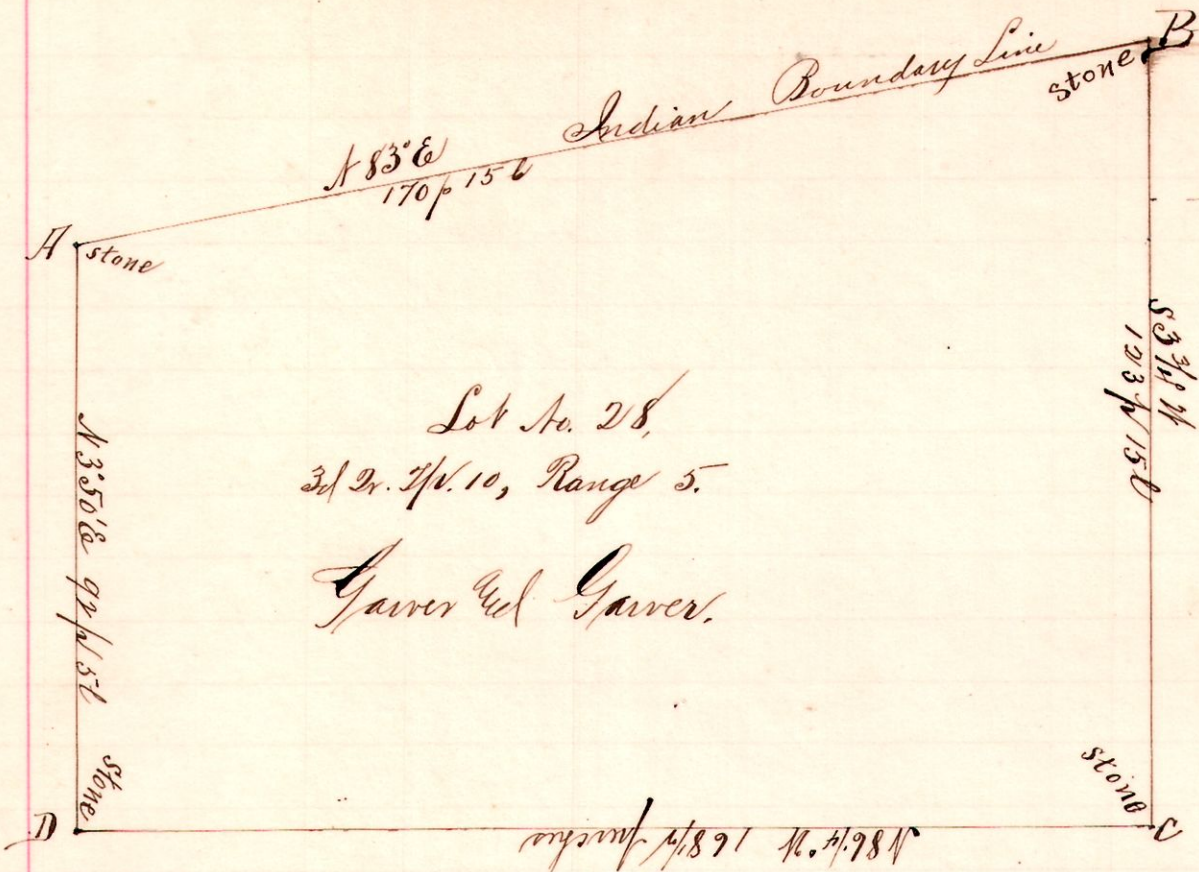 B
stone
Indian Boundary Line
N 83° E
170 p 15 l
A
stone
S 3 3/4 W
123 p 15 l
Lot No. 28,
3d Qr. T/p. 10, Range 5.
Garver Garver.
N 3° 50' E 92 p 5 l
stone
stone
D
C
N 86 1/4° W 168 1/2 perches